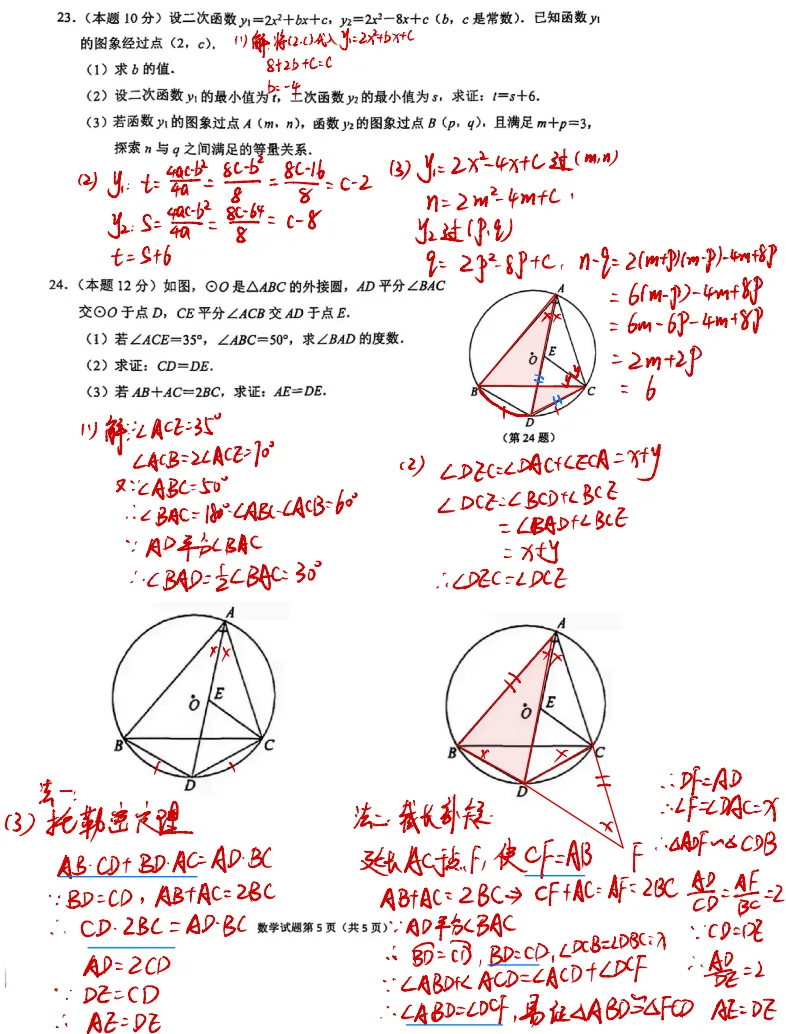 23.（本题10分）设二次函数y₁=2x²+bx+c，y₂=2x²－8x+c（b，c是常数）．已知函数y₁
的图象经过点（2，c）．
(1) 解：将(2,c)代入y₁=2x²+bx+c
8+2b+c=c
b=-4
（1）求b的值．
（2）设二次函数y₁的最小值为t，二次函数y₂的最小值为s，求证：t=s+6．
（3）若函数y₁的图象过点A（m，n），函数y₂的图象过点B（p，q），且满足m+p=3，
探索n与q之间满足的等量关系．
(2) y₁: t=\frac{4ac-b²}{4a}=\frac{8c-b²}{8}=\frac{8c-16}{8}=c-2
y₂: s=\frac{4ac-b²}{4a}=\frac{8c-64}{8}=c-8
t=s+6
(3) y₁=2x²-4x+c过(m,n)
n=2m²-4m+c,
y₂过(p,q)
q=2p²-8p+c, n-q=2(m+p)(m-p)-4m+8p
=6(m-p)-4m+8p
=6m-6p-4m+8p
=2m+2p
=6
24.（本题12分）如图，⊙O是△ABC的外接圆，AD平分∠BAC
交⊙O于点D，CE平分∠ACB交AD于点E．
（1）若∠ACE=35°，∠ABC=50°，求∠BAD的度数．
（2）求证：CD=DE．
（3）若AB+AC=2BC，求证：AE=DE．
A
x x
O
E
y y
B
C
D
（第24题）
(1) 解：∵∠ACE=35°
∠ACB=2∠ACE=70°
又∵∠ABC=50°
∴∠BAC=180°-∠ABC-∠ACB=60°
∵AD平分∠BAC
∴∠BAD=½∠BAC=30°
(2) ∠DEC=∠DAC+∠ECA=x+y
∠DCE=∠BCD+∠BCE
=∠BAD+∠BCE
=x+y
∴∠DEC=∠DCE
A
x x
O
E
B
C
D
A
x x
O
E
B
x
x
C
D
x
F
法一：
(3) 托勒密定理
AB·CD+BD·AC=AD·BC
∵BD=CD, AB+AC=2BC
∴CD·2BC=AD·BC
AD=2CD
∵DE=CD
∴AE=DE
法二：截长补短
延长AC于点F,使CF=AB
AB+AC=2BC⇒CF+AC=AF=2BC
∵AD平分∠BAC
∴BD=CD, BD=CD, ∠DCB=∠DBC=x
∵∠ABD+∠ACD=∠ACD+∠DCF
∴∠ABD=∠DCF,易证△ABD≌△FCD
∴DF=AD
∴∠F=∠DAC=x
∴△ADF∽△CDB
\frac{AD}{CD}=\frac{AF}{BC}=2
∵CD=DE
∴\frac{AD}{DE}=2
AE=DE
数学试题第5页（共5页）